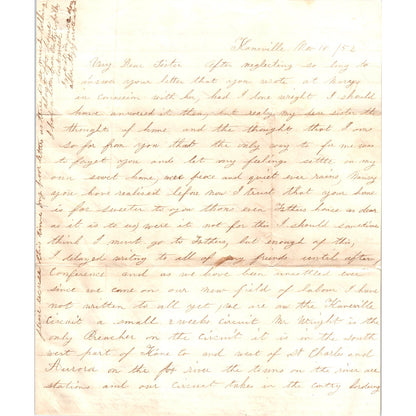 Kaneville Nov 10 / 52
Very Dear Sister After neglecting so long to
answer your letter that you wrote at
in connexion with her, had I done wright I should
have answered it then, but realy my dear sister the
thought of home and the thoughts that I am
so far from you that the only way to for me was
to forget you and let my feelings settle in my
own sweet home were peace and quiet ever rains,
you have realised before now I trust that your home
is far sweeter to you than even Fathers house as dear
as it is to us were it not for this I should sometimes
think I must go to Fathers, but enough of this,
I delayed writing to all of my friends until after
Conference and as we have been unsettled ever
since we came on our new field of labour I have
not written to all yet, we are on the Kaneville
Circuit a small 2 weeks circuit Mr Wright is the
only Preacher on the circuit it is in the south
west part of Kane Co and west of St Charles and
Aurora on the fox river the towns on the river are
stations and our circuit takes in the contry bordering
please excuse this poor letter